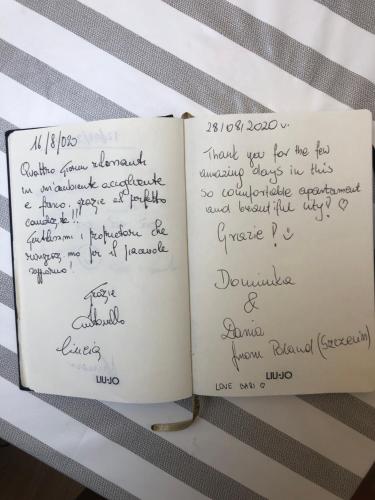 16/8/020
Quattro Giorni rilassanti
in un'ambiente accogliente
e fresco. grazie al perfetto
Gentilissimi i proprietari che
per il piacevole
soggiorno!
Grazie
Antonello
Cinzia
LIU•JO
28/08/2020 r.
Thank you for the few
amazing days in this
so comfortable apartament
and beautiful city! ♡
Grazie! :)
Dominika
&
Daria
from Poland (Szczecin)
LIU•JO
LOVE BARI ♡